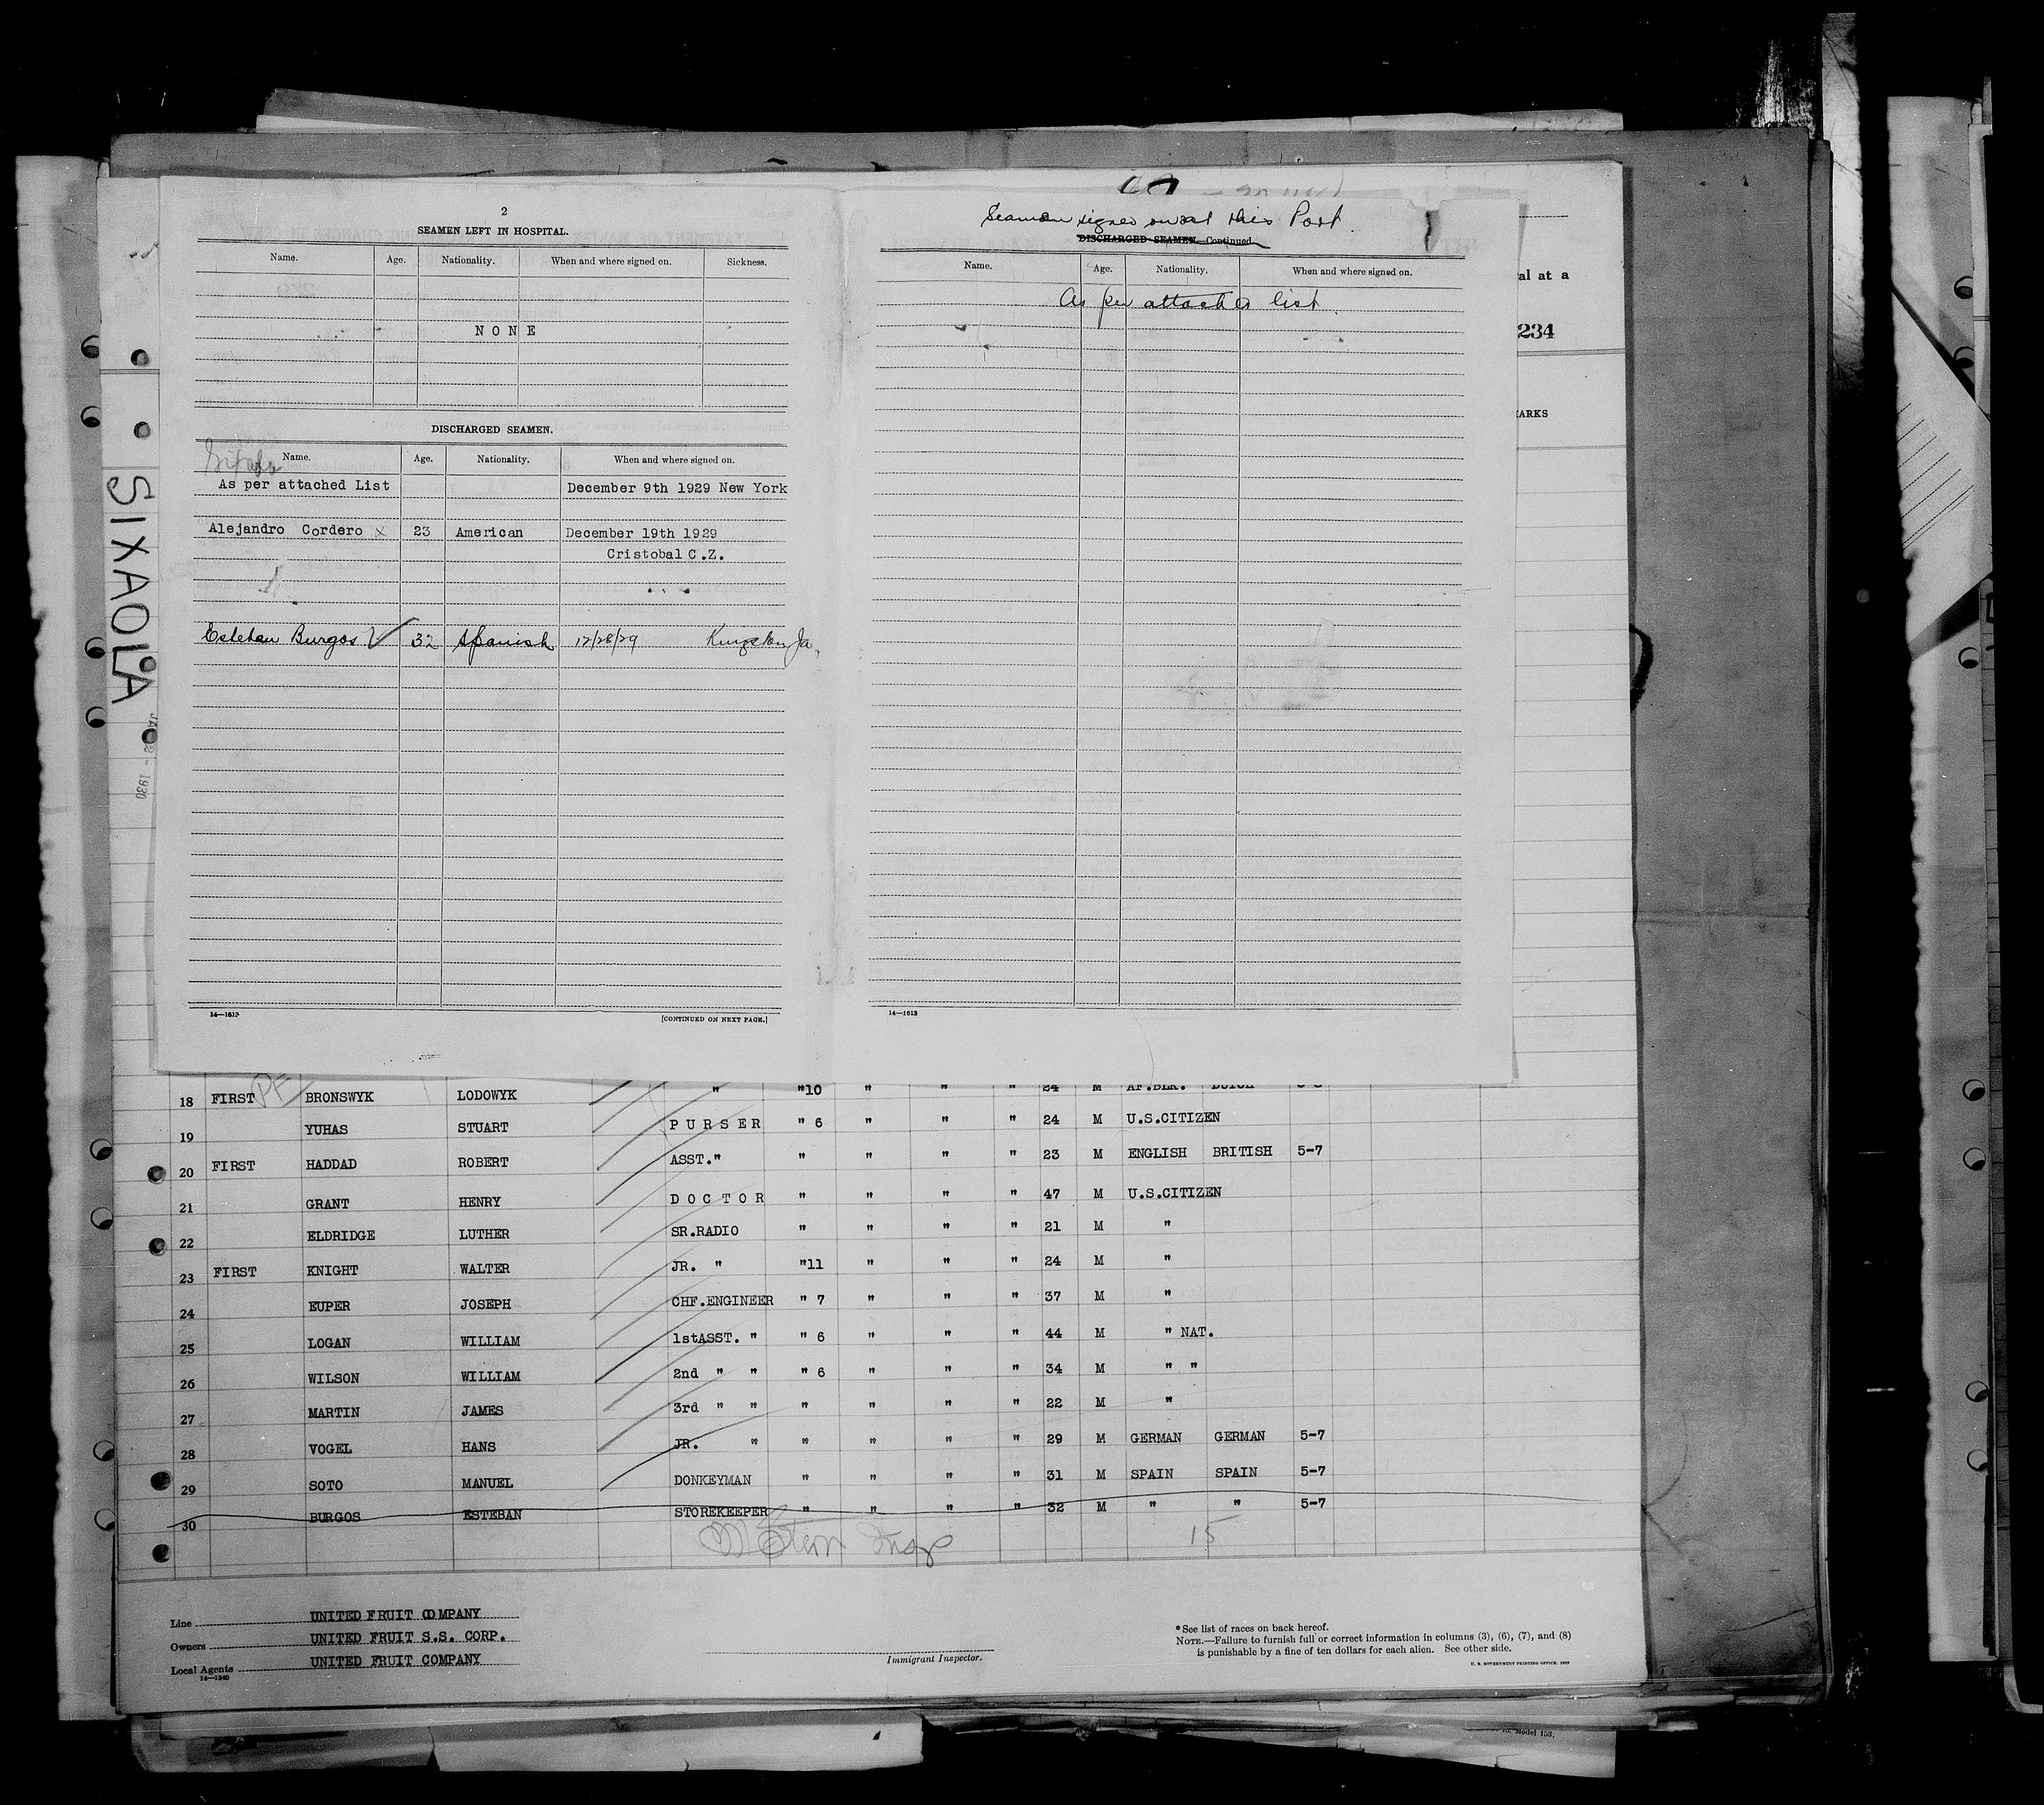 2
SEAMEN LEFT IN HOSPITAL.
Name. Age. Nationality. When and where signed on. Sickness.
NONE
DISCHARGED SEAMEN.
Name. Age. Nationality. When and where signed on.
As per attached List December 9th 1929 New York
Alejandro Cordero x 23 American December 19th 1929
Cristobal C.Z.
Esteban Burgos 32 Spanish 12/28/29 Kingston Ja.
14—1613
[CONTINUED ON NEXT PAGE.]
Seamen signed on at this Port.
DISCHARGED SEAMEN—Continued
Name. Age. Nationality. When and where signed on.
As per attached list
14—1613
al at a
234
ARKS
SIXAOLA
1930
18 FIRST BRONSWYK LODOWYK " "10 " " " 24 M AF.BLK. DUTCH
19 YUHAS STUART PURSER " 6 " " " 24 M U.S.CITIZEN
20 FIRST HADDAD ROBERT ASST." " " " " 23 M ENGLISH BRITISH 5-7
21 GRANT HENRY DOCTOR " " " " 47 M U.S.CITIZEN
22 ELDRIDGE LUTHER SR.RADIO " " " " 21 M "
23 FIRST KNIGHT WALTER JR. " "11 " " " 24 M "
24 EUPER JOSEPH CHF.ENGINEER " 7 " " " 37 M "
25 LOGAN WILLIAM 1stASST. " " 6 " " " 44 M " NAT.
26 WILSON WILLIAM 2nd " " " 6 " " " 34 M " "
27 MARTIN JAMES 3rd " " " " " " 22 M "
28 VOGEL HANS JR. " " " " " 29 M GERMAN GERMAN 5-7
29 SOTO MANUEL DONKEYMAN " " " " 31 M SPAIN SPAIN 5-7
30 BURGOS ESTEBAN STOREKEEPER " " " " 32 M " " 5-7
15
Line UNITED FRUIT COMPANY
Owners UNITED FRUIT S.S. CORP.
Local Agents UNITED FRUIT COMPANY
14—1240
Immigrant Inspector.
*See list of races on back hereof.
NOTE.—Failure to furnish full or correct information in columns (3), (6), (7), and (8)
is punishable by a fine of ten dollars for each alien. See other side.
U. S. GOVERNMENT PRINTING OFFICE.
Model 153.